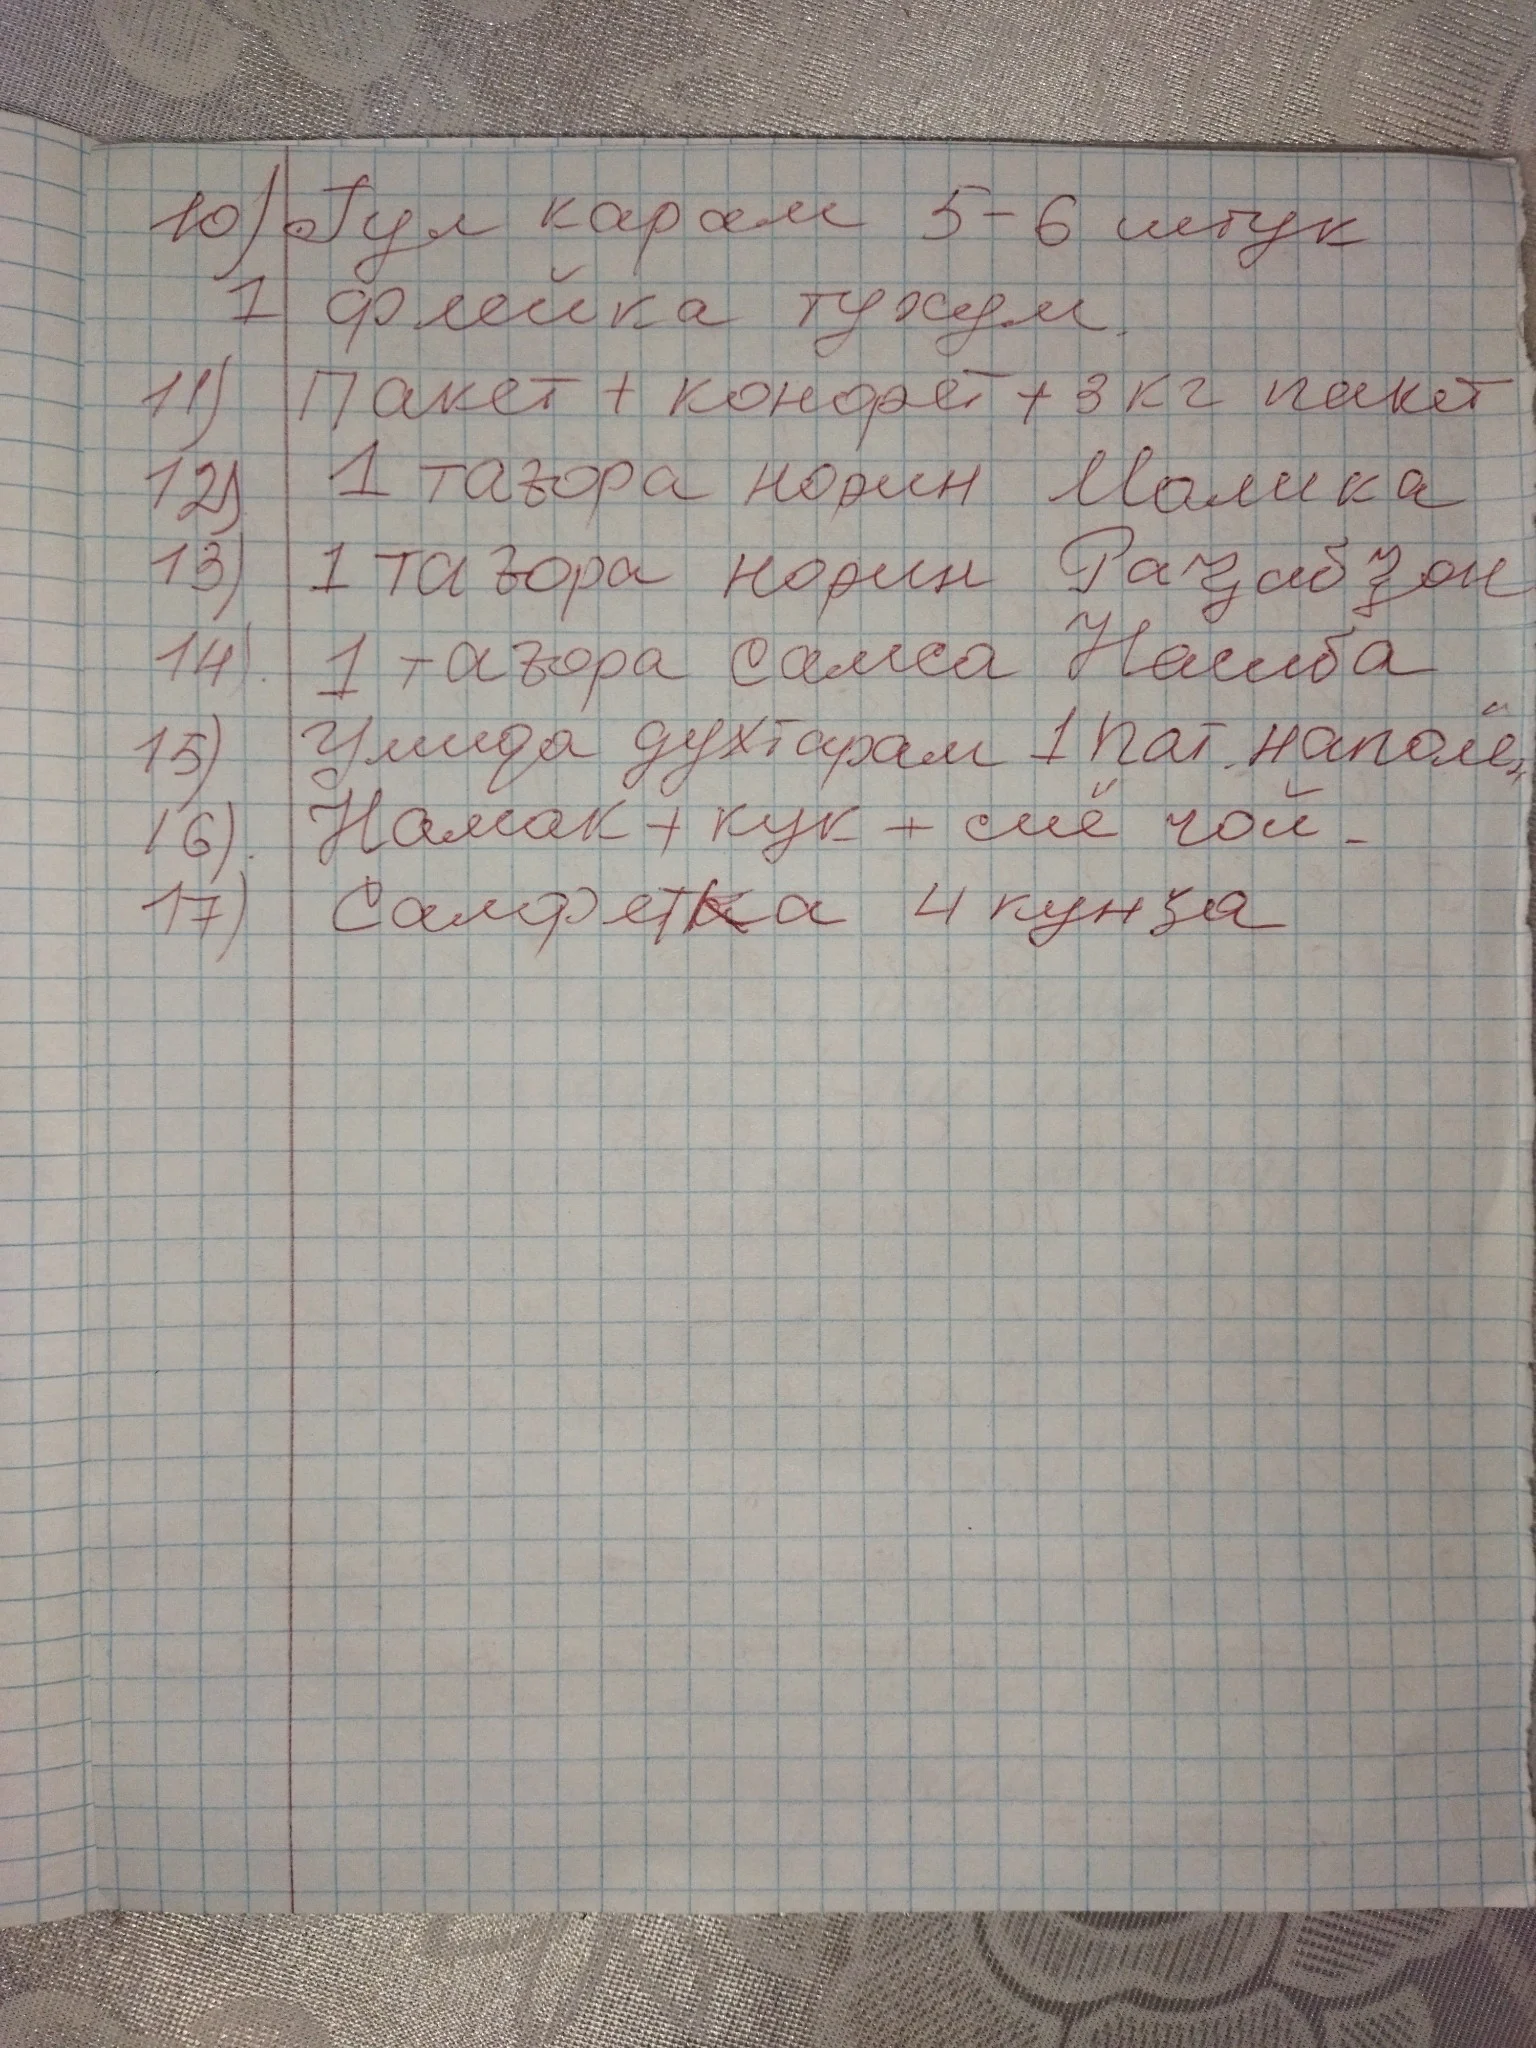 10) Гул карам 5-6 штук
1 флейка тухум.
11) Пакет + конфет + 3 кг пакет
12) 1 тагора норин Малика
13) 1 тагора норин Раҷабҷон
14). 1 тагора самса Насиба
15) Умида духтарам 1 пат. наполе
16). Намак + кук + сиё чой -
17) Салфетка 4 кунҷа